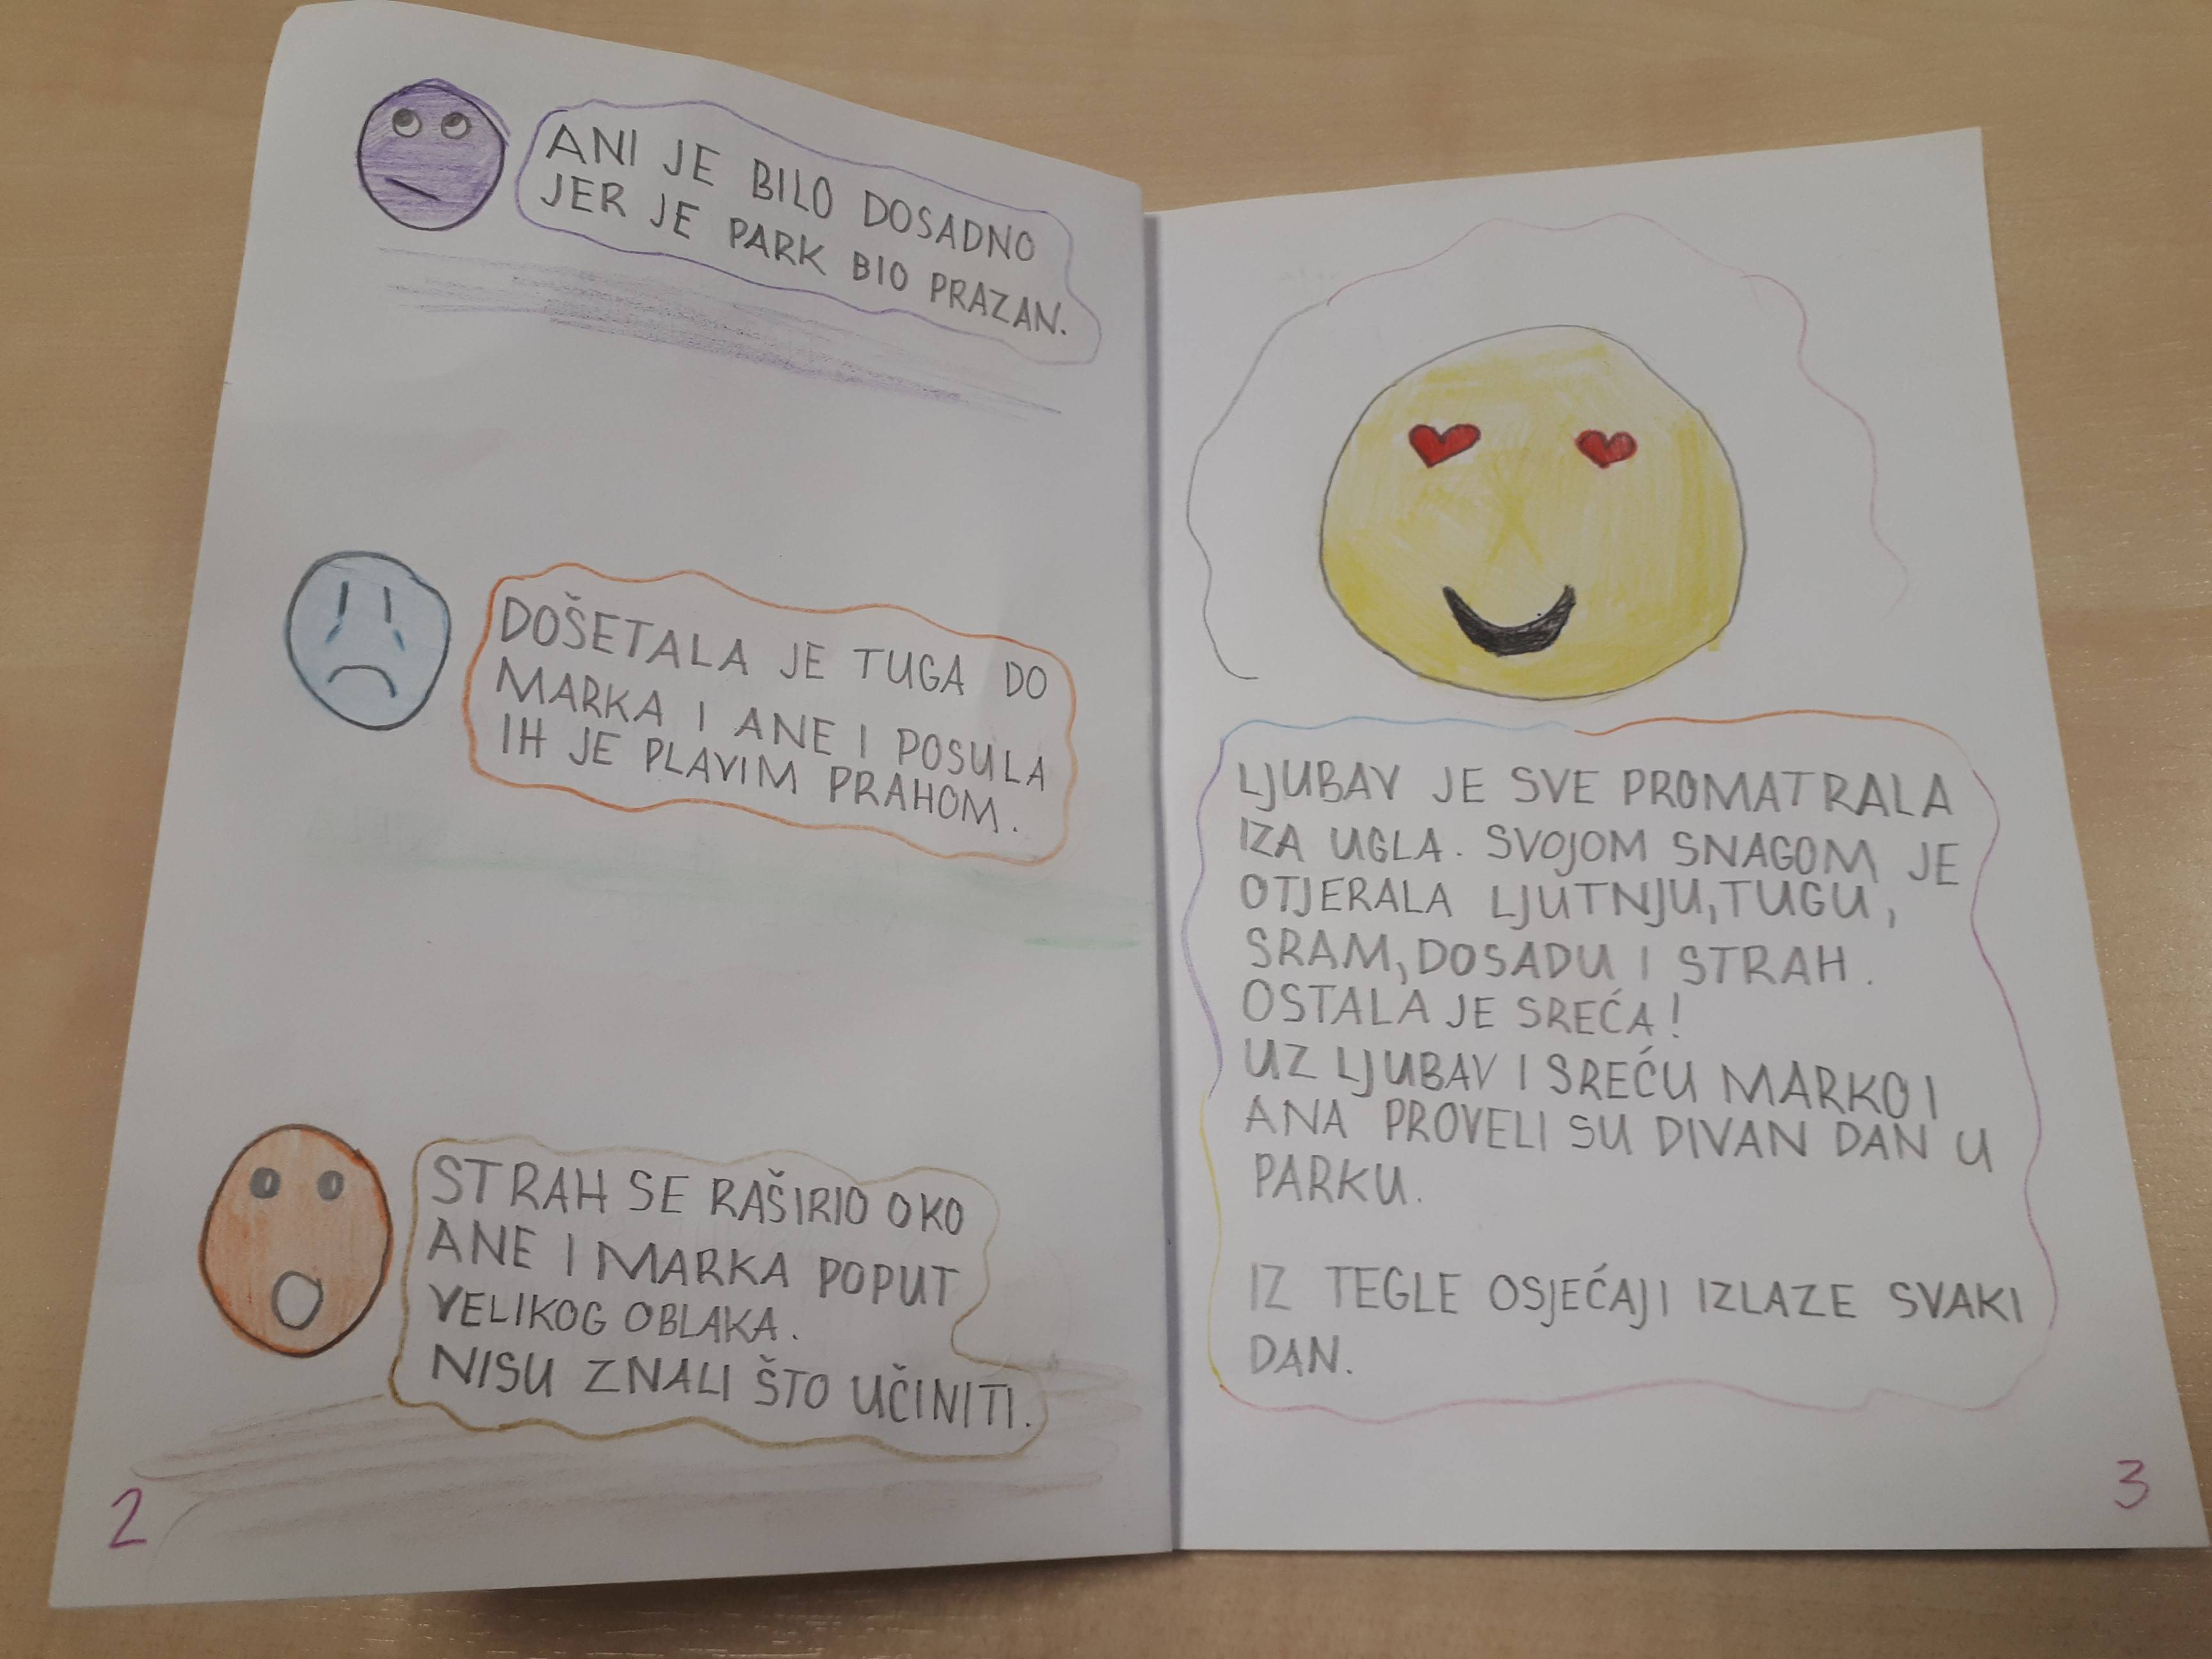 ANI JE BILO DOSADNO
JER JE PARK BIO PRAZAN.
DOŠETALA JE TUGA DO
MARKA I ANE I POSULA
IH JE PLAVIM PRAHOM.
STRAH SE RAŠIRIO OKO
ANE I MARKA POPUT
VELIKOG OBLAKA.
NISU ZNALI ŠTO UČINITI.
2
LJUBAV JE SVE PROMATRALA
IZA UGLA. SVOJOM SNAGOM JE
OTJERALA LJUTNJU, TUGU,
SRAM, DOSADU I STRAH.
OSTALA JE SREĆA!
UZ LJUBAV I SREĆU MARKO I
ANA PROVELI SU DIVAN DAN U
PARKU.
IZ TEGLE OSJEĆAJI IZLAZE SVAKI
DAN.
3